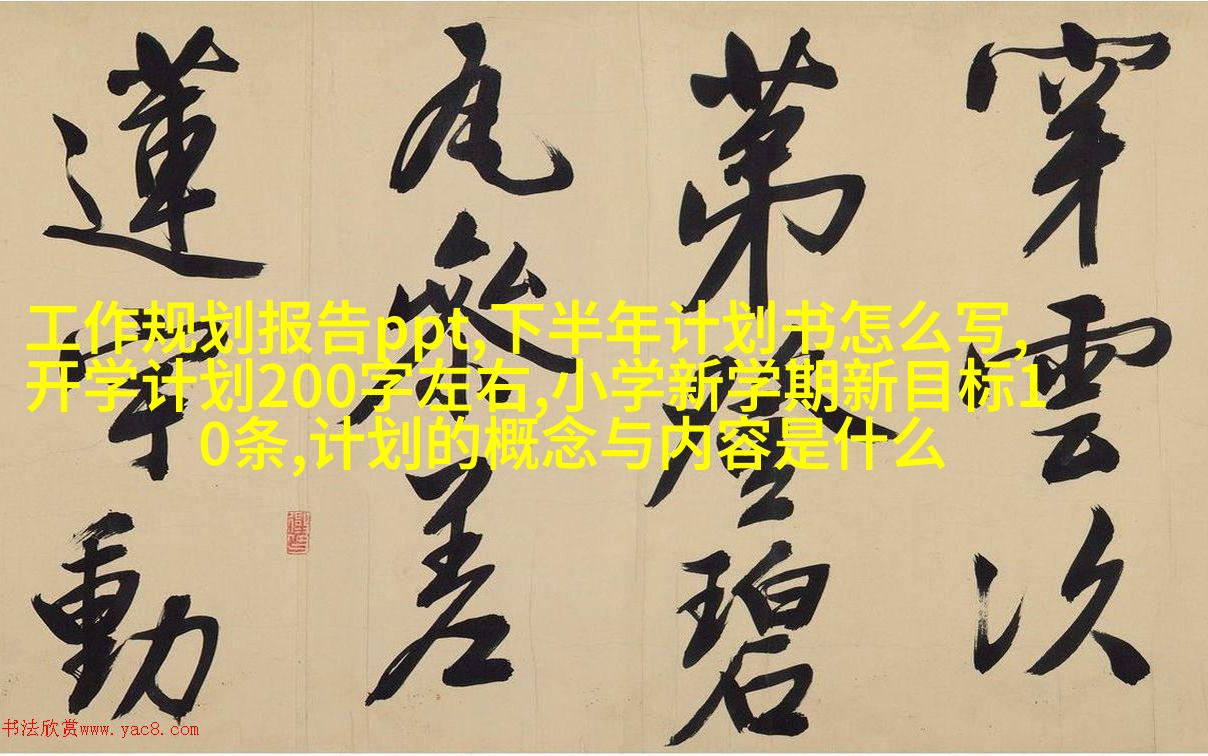 穿雲次
第登碧
瓦參差
蓮宇動
工作规划报告ppt,下半年计划书怎么写,
开学计划200字左右,小学新学期新目标1
0条,计划的概念与内容是什么
书法欣赏www.yac8.com